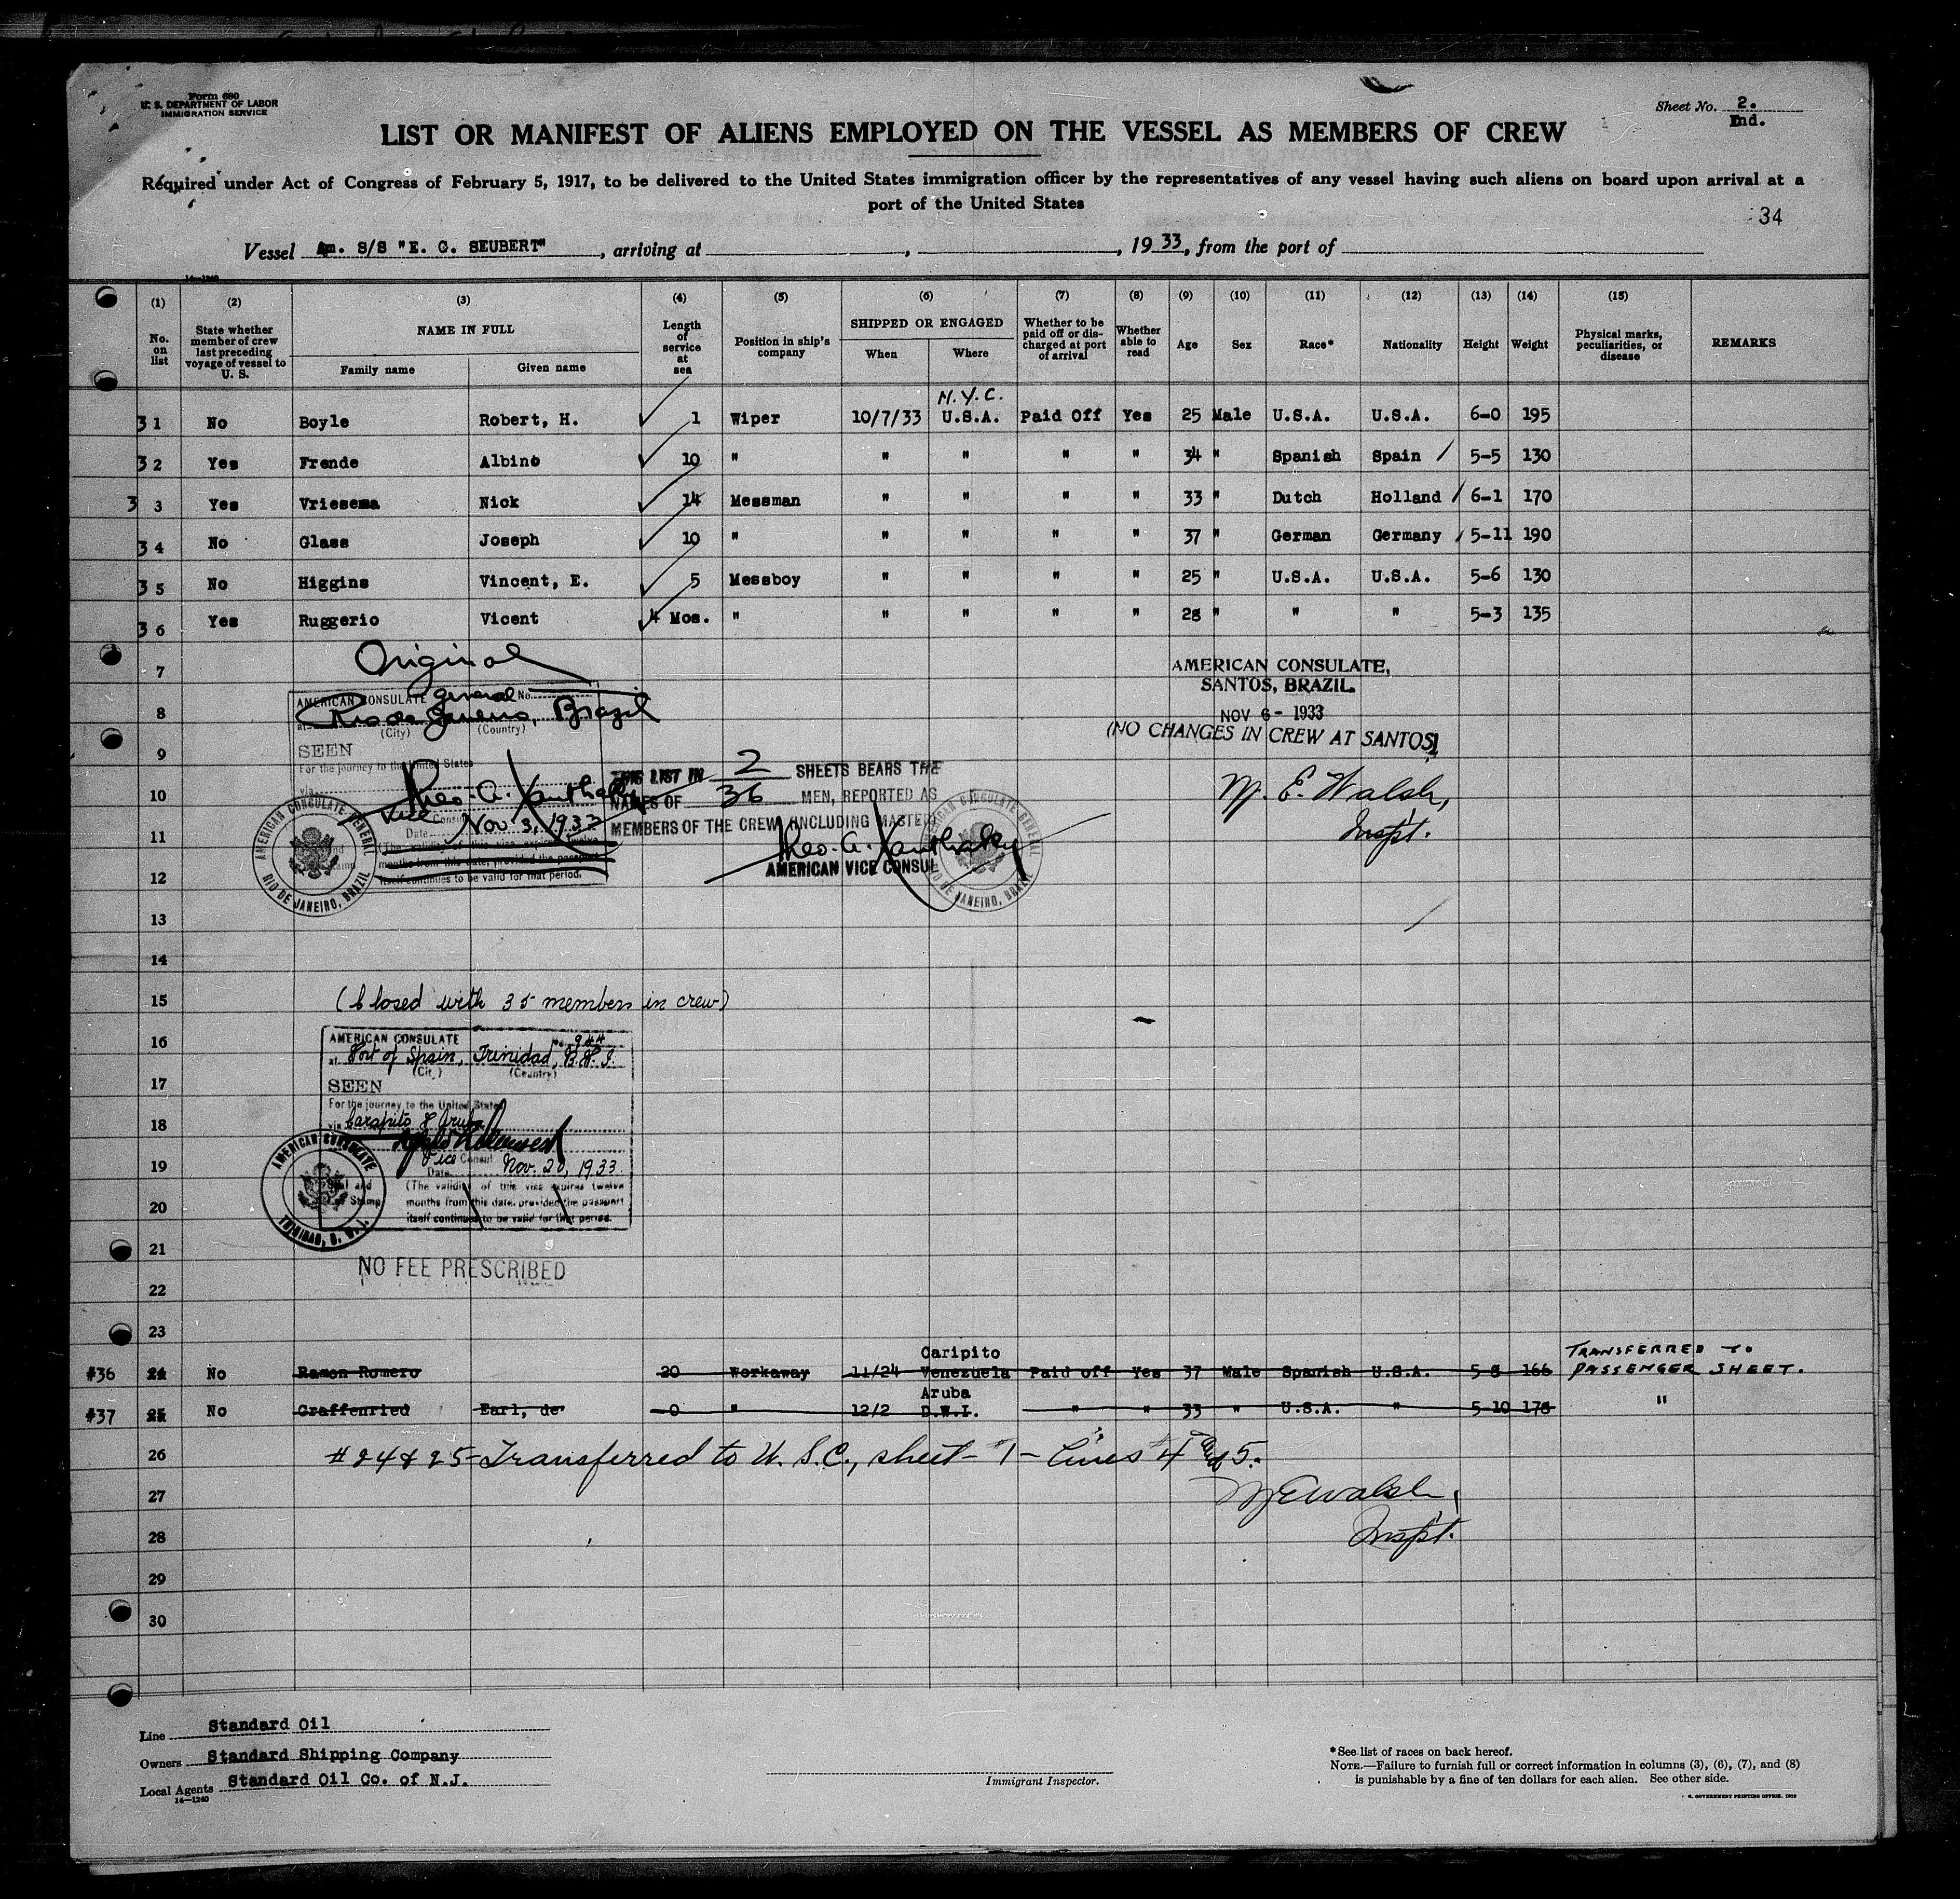 Form 680
U. S. DEPARTMENT OF LABOR
IMMIGRATION SERVICE
Sheet No. 2.
End.
LIST OR MANIFEST OF ALIENS EMPLOYED ON THE VESSEL AS MEMBERS OF CREW
Required under Act of Congress of February 5, 1917, to be delivered to the United States immigration officer by the representatives of any vessel having such aliens on board upon arrival at a
port of the United States
34
Vessel Am. S/S "E. G. SEUBERT", arriving at , , 1933, from the port of
14—1240
(1) (2) (3) (4) (5) (6) (7) (8) (9) (10) (11) (12) (13) (14) (15)
No. on list
State whether member of crew last preceding voyage of vessel to U. S.
NAME IN FULL
Family name
Given name
Length of service at sea
Position in ship's company
SHIPPED OR ENGAGED
When
Where
Whether to be paid off or discharged at port of arrival
Whether able to read
Age
Sex
Race*
Nationality
Height
Weight
Physical marks, peculiarities, or disease
REMARKS
N.Y.C.
31 No Boyle Robert, H. 1 Wiper 10/7/33 U.S.A. Paid Off Yes 25 Male U.S.A. U.S.A. 6-0 195
32 Yes Frende Albino 10 " " " " " 34 " Spanish Spain 5-5 130
33 Yes Vriesema Nick 14 Messman " " " " 33 " Dutch Holland 6-1 170
34 No Glass Joseph 10 " " " " " 37 " German Germany 5-11 190
35 No Higgins Vincent, E. 5 Messboy " " " " 25 " U.S.A. U.S.A. 5-6 130
36 Yes Ruggerio Vicent 4 Mos. " " " " " 28 " " " 5-3 135
Original
7
AMERICAN CONSULATE,
SANTOS, BRAZIL.
NOV 6 - 1933
(NO CHANGES IN CREW AT SANTOS)
M. E. Walsh,
Inspt.
AMERICAN CONSULATE general No.
at Rio de Janeiro, Brazil
(City) (Country)
8
SEEN
For the journey to the United States
via
9
Theo. A. Xanthaky
Vice Consul
Date Nov 3, 1933
(The validity of this visa expires twelve
months from this date, provided the passport
itself continues to be valid for that period.
AMERICAN CONSULATE GENERAL
RIO DE JANEIRO, BRAZIL
THIS LIST IN 2 SHEETS BEARS THE
NAMES OF 36 MEN, REPORTED AS
MEMBERS OF THE CREW (INCLUDING MASTER)
Theo. A. Xanthaky
AMERICAN VICE CONSUL
AMERICAN CONSULATE GENERAL
RIO DE JANEIRO, BRAZIL
10
11
12
13
14
15
(Closed with 35 members in crew)
16
AMERICAN CONSULATE No. 944
at Port of Spain, Trinidad, B.W.I.
(City) (Country)
17
SEEN
For the journey to the United States
18
via Carapito & Aruba
Vice Consul
19
Date Nov. 20, 1933
(The validity of this visa expires twelve
months from this date, provided the passport
itself continues to be valid for that period.
AMERICAN CONSULATE
TRINIDAD, B. W. I.
20
21
NO FEE PRESCRIBED
22
23
Caripito
TRANSFERRED TO
#36 24 No Ramon Romero 20 Workaway 11/24 Venezuela Paid off Yes 37 Male Spanish U.S.A. 5-8 166 PASSENGER SHEET.
Aruba
#37 25 No Graffenried Earl, de 0 " 12/2 D.W.I. " " 33 " U.S.A. " 5-10 178 "
26 #24 & 25 Transferred to U.S.C., sheet #1 - Lines #4 & 5.
27 M E Walsh,
28 Inspt.
29
30
Line Standard Oil
Owners Standard Shipping Company
Local Agents Standard Oil Co. of N.J.
14—1240
Immigrant Inspector.
*See list of races on back hereof.
NOTE.—Failure to furnish full or correct information in columns (3), (6), (7), and (8)
is punishable by a fine of ten dollars for each alien. See other side.
GOVERNMENT PRINTING OFFICE.